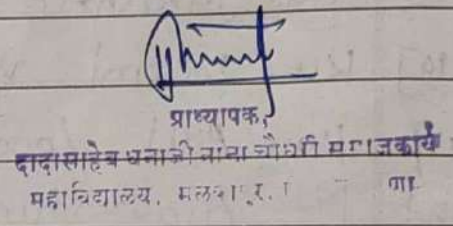 प्राध्यापक,
दादासाहेब धनाजी नाना चौधरी समाजकार्य
महाविद्यालय, मलकापूर,